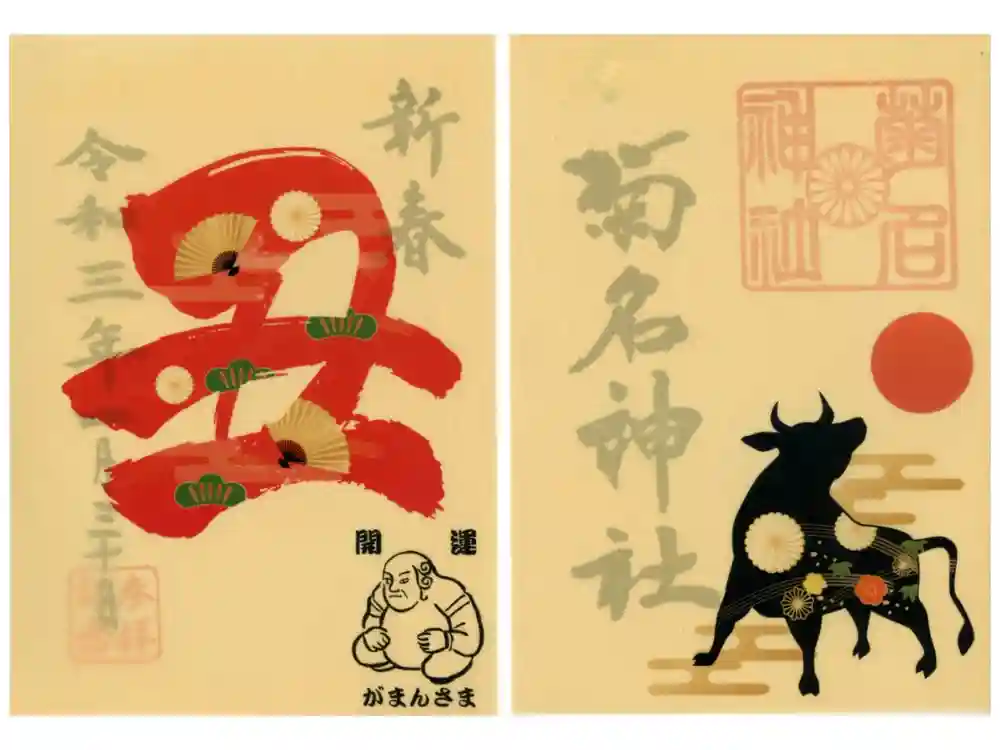 新春
丑
令和三年月三十日
開運
がまんさま
菊名
神社
菊名神社